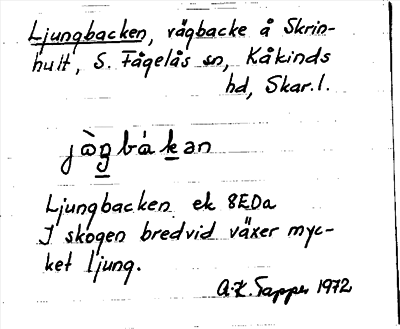 Ljungbacken, vägbacke å Skrin-
hult, S. Fågelås sn, Kåkinds
hd, Skar.l.
jòŋbákan
Ljungbacken ek 8EDa
I skogen bredvid växer myc-
ket ljung.
A.K. Tapper 1972